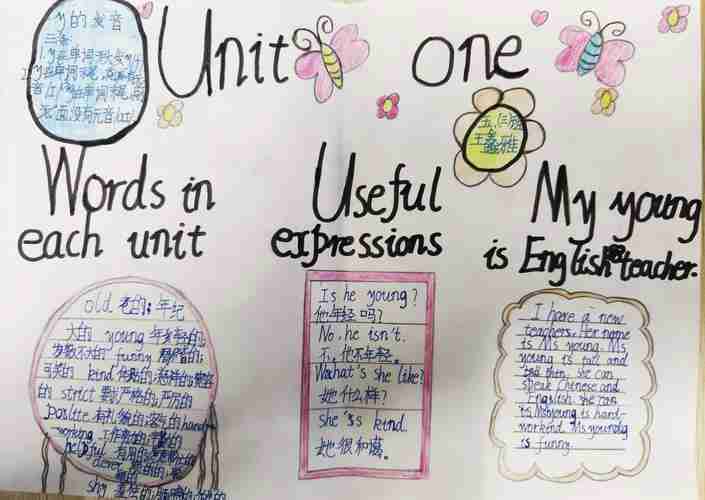 y的发音
Unit one
五、(三)班
Words in
each unit
old 老的；年纪
大的 young 年岁轻的；
岁数不大的 funny 滑稽的；
可笑的 kind
的 strict 要求严格的；严厉的
polite 有礼貌的；客气的 hard-
working 工作努力的；
helpful 有用的
clever
shy
Useful
expressions
Is he young?
他年轻吗?
No, he isn't.
不，他不年轻。
What's she like?
她什么样?
she's kind.
她很和蔼。
My young
is English teacher.
I have a new
teachers. Her name
is Ms young. Ms
young is tall and
thin. she can
speak Chinese and
English. she can
is Ms young is hard-
workend. Ms young
is funny